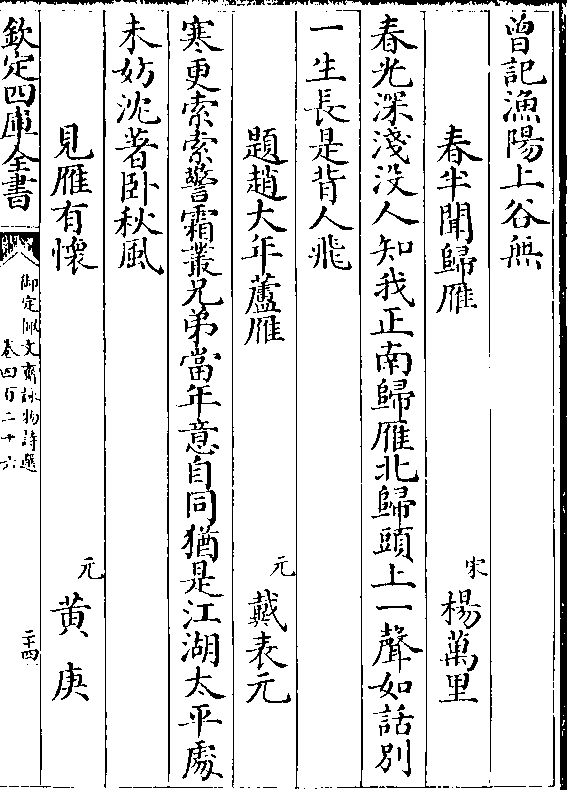 曾記漁陽上谷無
春半聞歸雁 宋 楊萬里
春光深淺没人知我正南歸雁北歸頭上一聲如話別
一生長是背人飛
題趙大年蘆雁 元 戴表元
寒更索索警霜叢兄弟當年意自同猶是江湖太平處
未妨沈著卧秋風
見雁有懷 元 黄庚
欽定四庫全書 御定佩文齋詠物詩選 卷四百二十六 二十四